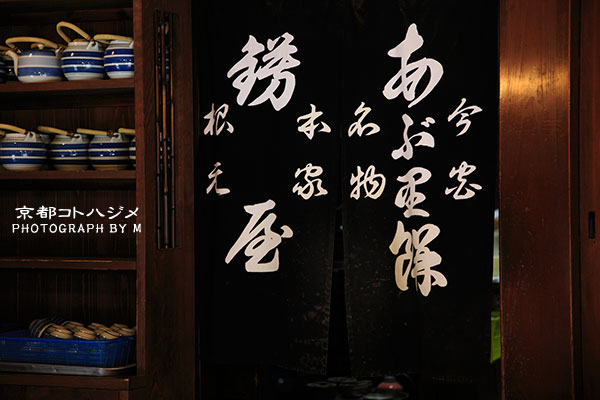 今宮
あぶ里餅
名物
本家
錺屋
根元
京都コトハジメ
PHOTOGRAPH BY M